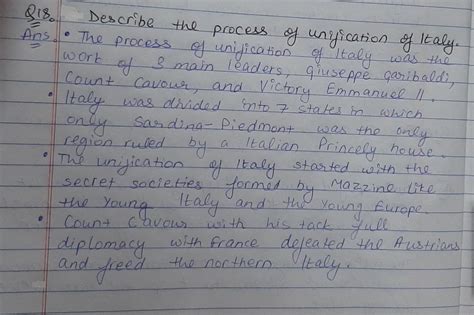 Q18. Describe the process of unification of Italy.
Ans. • The process of unification of Italy was the
work of 3 main leaders, giuseppe garibaldi,
Count Cavour, and Victory Emmanuel II.
• Italy was divided into 7 states in which
only Sardina-Piedmont was the only
region ruled by a Italian Princely house.
• The unification of Italy started with the
secret societies formed by Mazzine like
the Young Italy and the Young Europe.
• Count Cavour with his tack full
diplomacy with France defeated the Austrians
and freed the northern Italy.